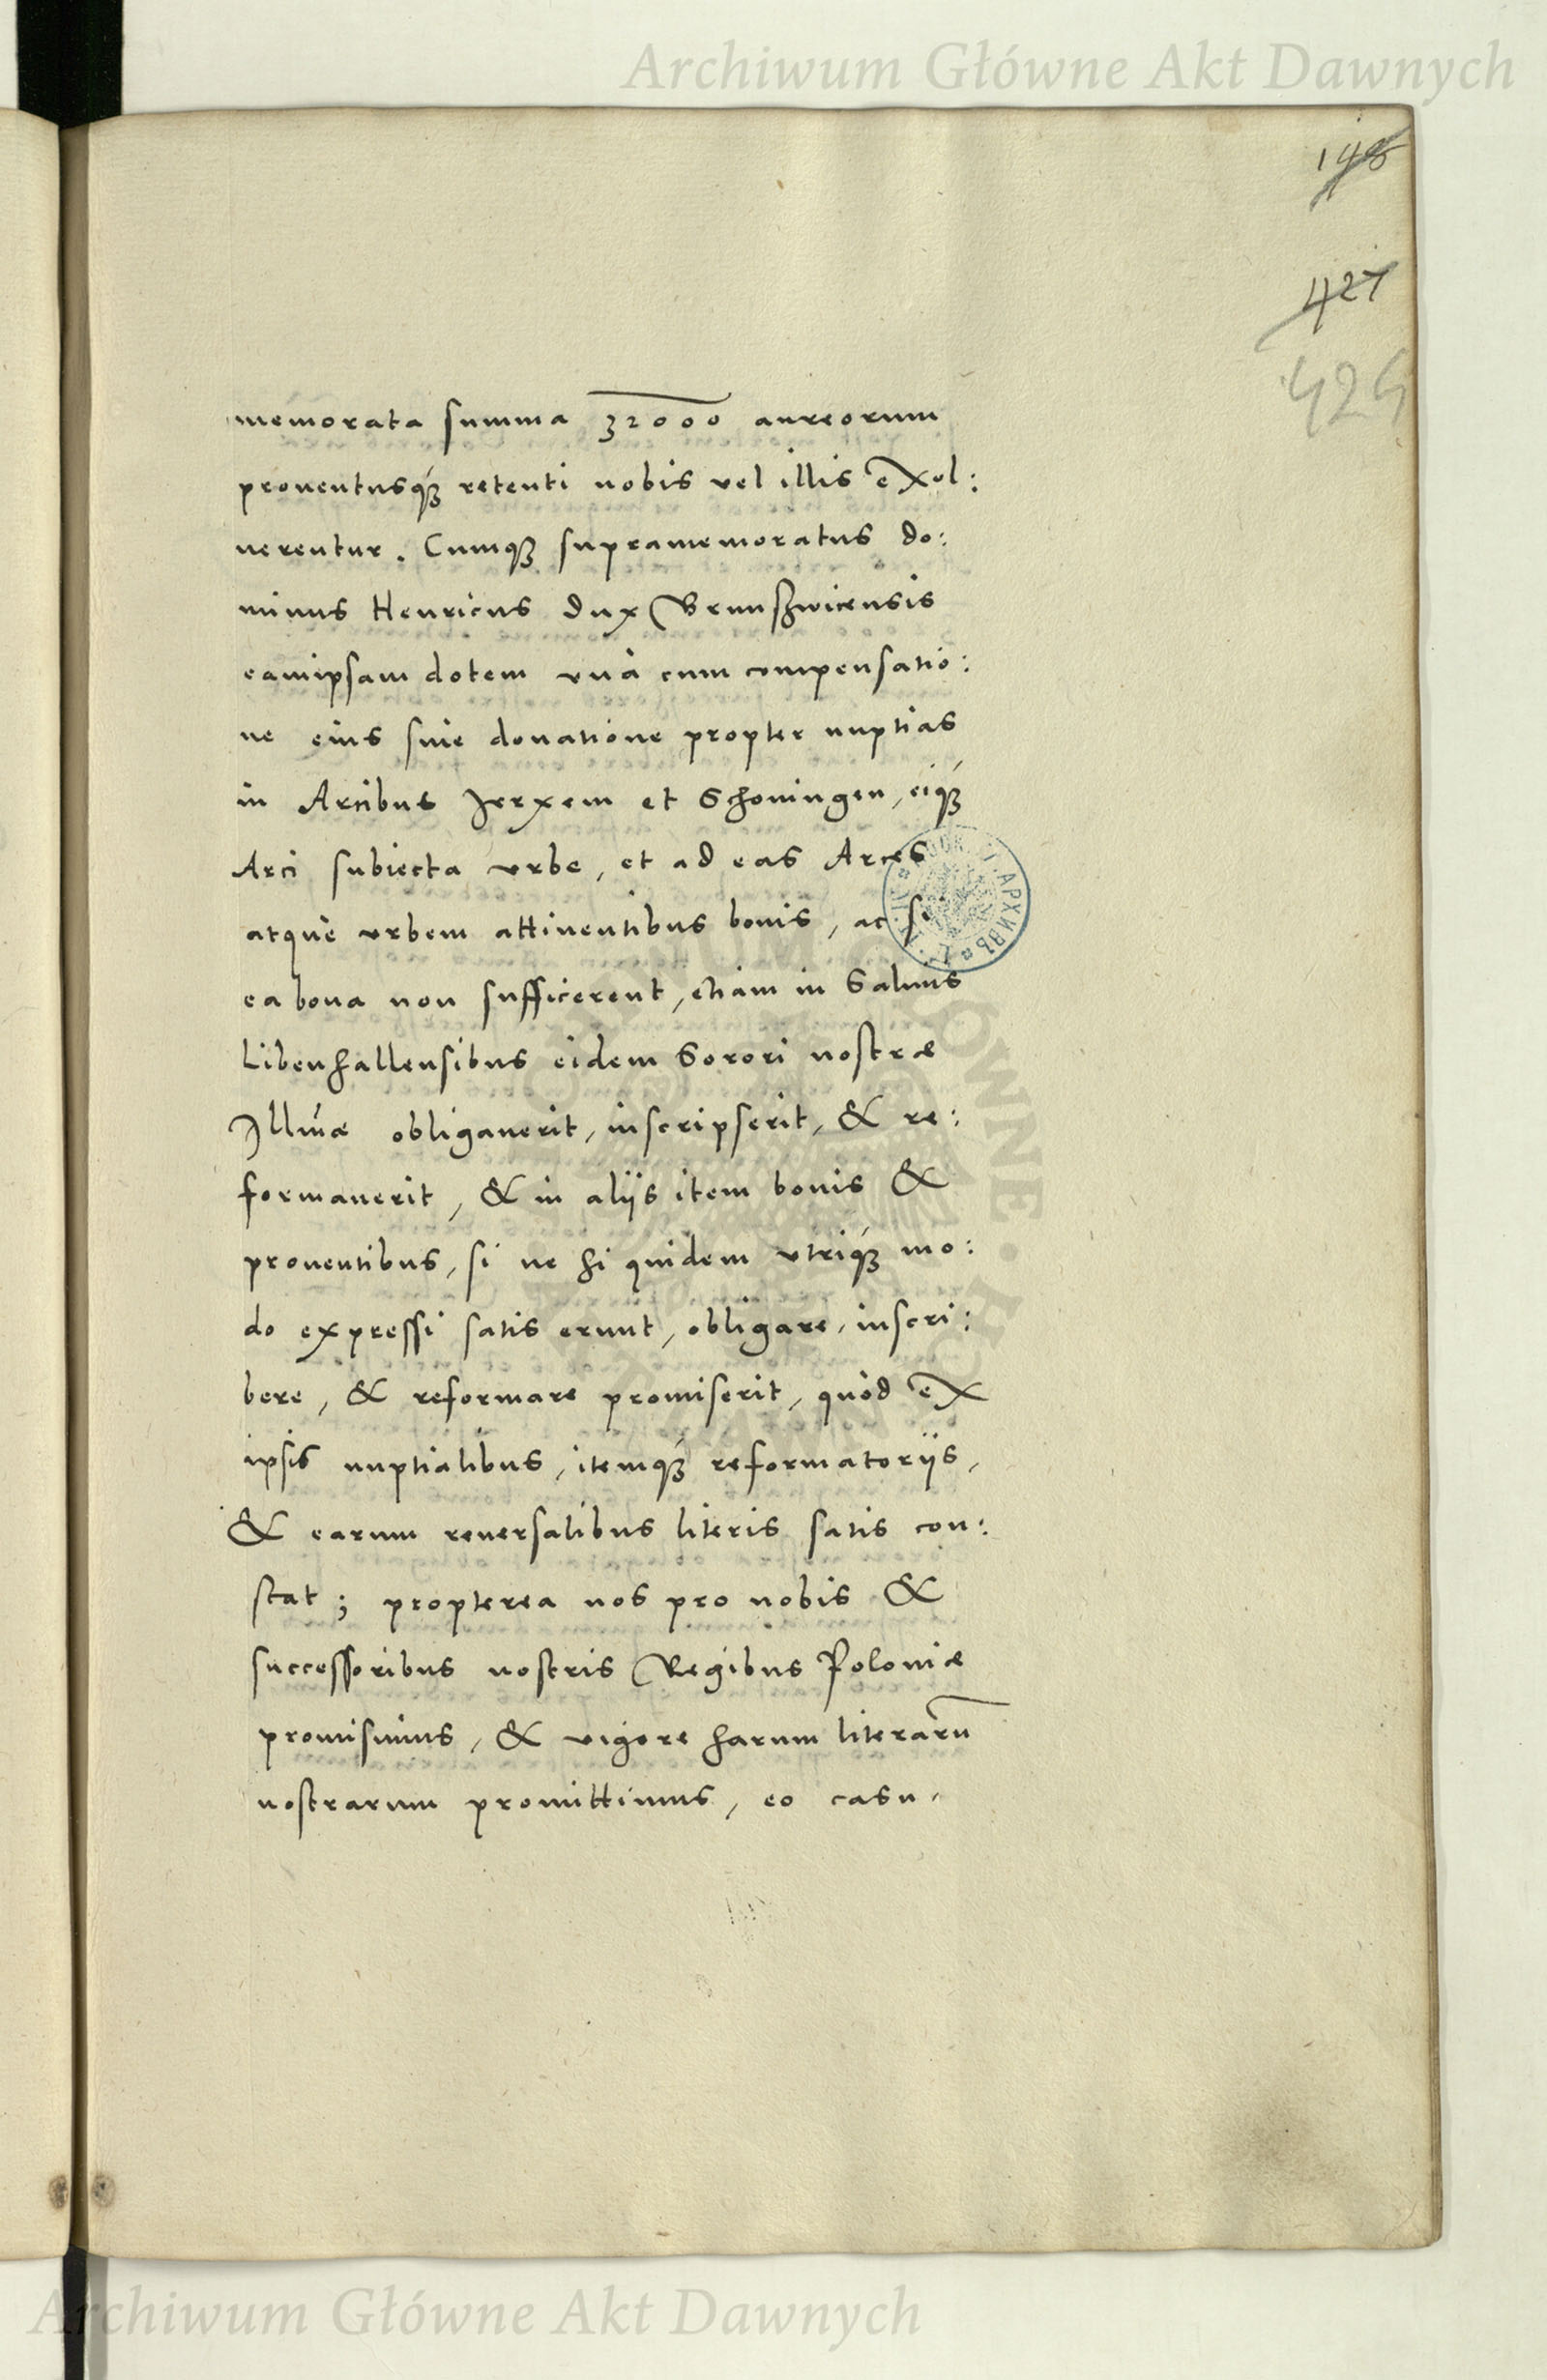 Archiwum Główne Akt Dawnych
427
424
memorata summa 32000 aureorum
prouentusq́ꝫ retenti nobis vel illis exol:
uerentur. Cumqꝫ supramemoratus do:
minus Henricus dux Brunszwicensis
eamipsam dotem vnà cum compensatio:
ne eius siue donatione propter nuptias
in Arcibus Jerxem et Schoningen, eiq́ꝫ
Arci subiecta vrbe, et ad eas Arces
atque vrbem attinentibus bonis, ac si
ea bona non sufficerent, etiam in Salinis
Libenhallensibus eidem Sorori nostræ
Illmæ obligauerit, inscripserit, & re:
formauerit, & in alijs item bonis &
prouentibus, si ne hi quidem vtriq́ꝫ mo:
do expressi satis erunt, obligare, inscri:
bere, & reformare promiserit, quòd ex
ipsis nuptialibus, itemq́ꝫ reformatorijs,
& earum reuersalibus literis satis con:
stat; propterea nos pro nobis &
successoribus nostris Regibus Poloniæ
promisimus, & vigore harum literarū
nostrarum promittimus, eo casu,
Archiwum Główne Akt Dawnych